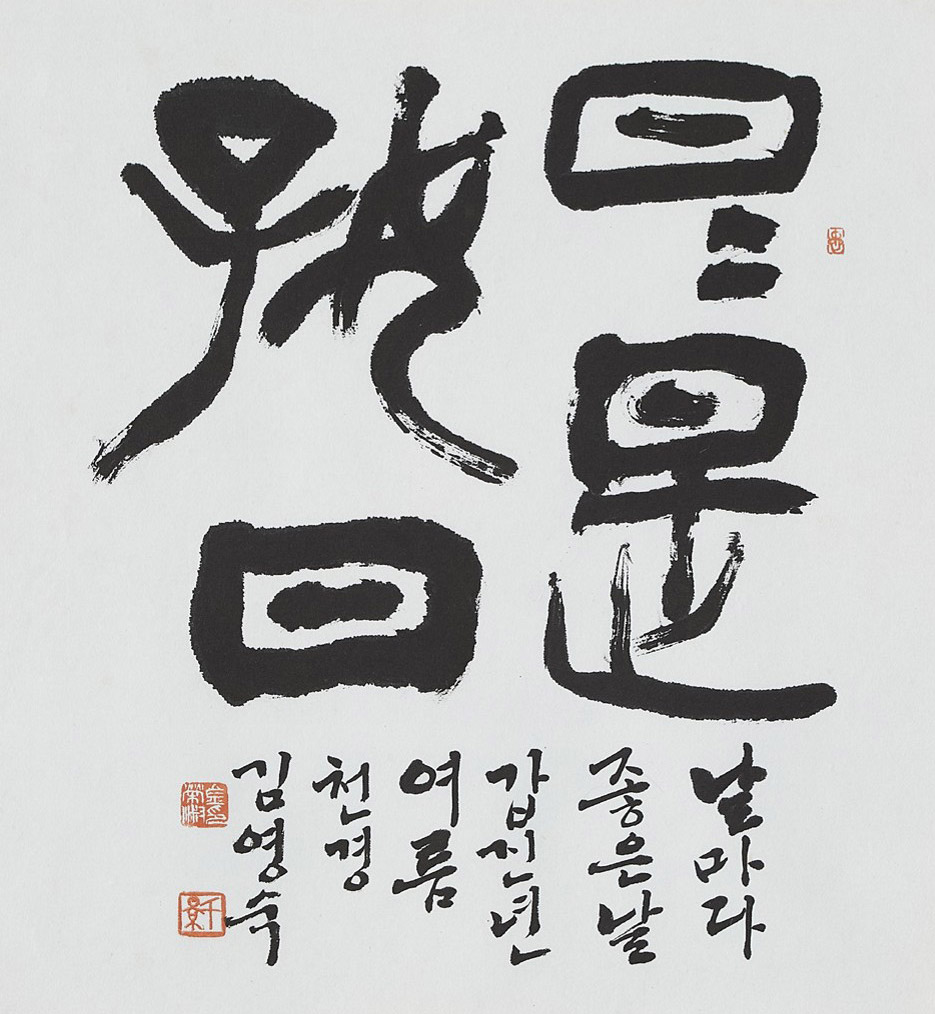 日〻是
好日
날마다
좋은날
갑진년
여름
천경
김영숙
千景